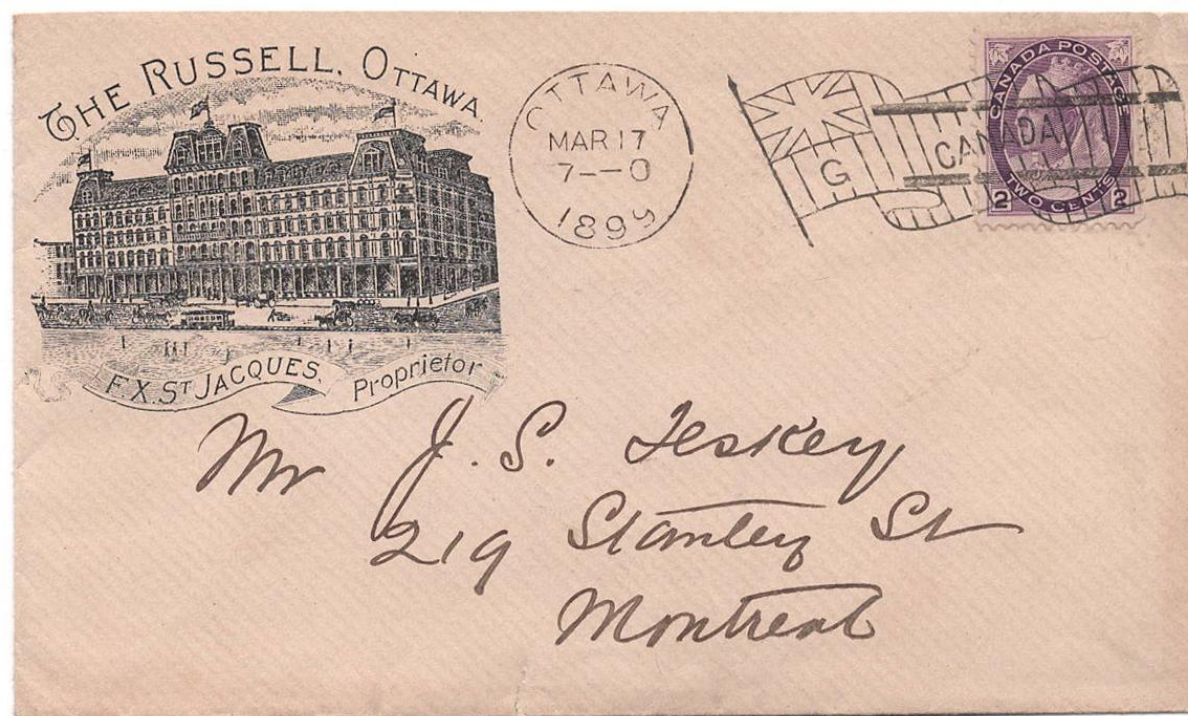 THE RUSSELL, OTTAWA
F.X. ST JACQUES, Proprietor
OTTAWA
MAR 17
7--0
1899
G
CANADA
CANADA POSTAGE
TWO CENTS
2 2
Mr J. S. Teskey
219 Stanley St
Montreal